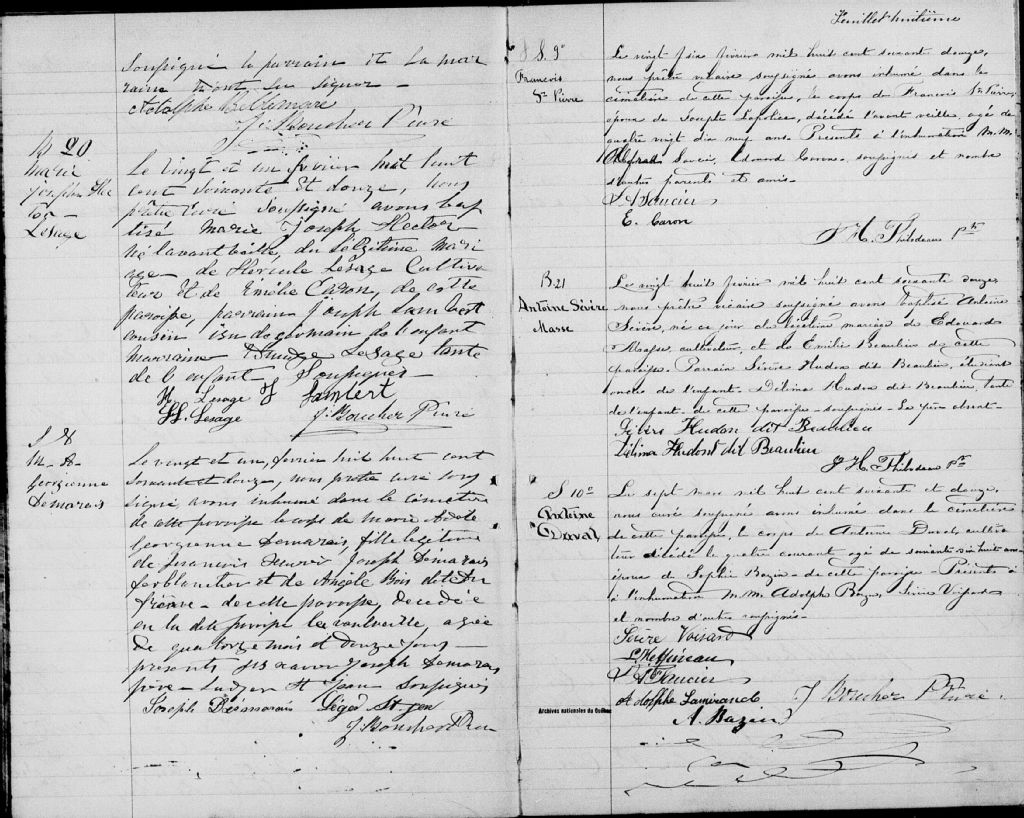 soussigné le parrain et la mar
raine n'ont su signer
Adolphe Bellemare
J. Boucher Ptre Curé
B 20
Marie
Joseph Hec
tor
Lesage
Le vingt et un février huit huit
cent soixante et douze, nous
prêtre curé soussigné avons bap
tisé Marie Joseph Hector
né l'avant veille, du légitime maria
ge de Hercule Lesage Cultiva
teur et de Emélie Caron, de cette
paroisse, parrain Joseph Lambert
cousin issu de germain de l'enfant
marraine Lesage tante
de l'enfant soussignés
H Lesage J Lambert
Lesage
J. Boucher Ptre Curé
S 8
M. A.
Georgienne
Demarais
Le vingt et un, fevrier huit huit cent
soixante et douze, nous prêtre curé sous
signé avons inhumé dans le cimetière
de cette paroisse le corps de Marie Adèle
Georgienne Demarais, fille légitime
de François Xavier Joseph Demarais
ferblantier et de Angèle
de cette paroisse, decedée
en la dite paroisse l'avant veille, agée
de quatorze mois et douze jours
presents Xavier Joseph Demarais
père soussignés
Joseph Desmarais Léger St jean
J. Boucher Ptre
Feuillet huitième
S. 9e
Francois
St Pierre
Le vingt six février mil huit cent soixant douze,
nous prêtre vicaire soussigné avons inhumé dans le
cimetière de cette paroisse, le corps de Francois St Pierre,
époux de Josephte Lafolie, décédé l'avant veille, agé de
quatre vingt dix neuf ans Présents à l'inhumation M.M.
Alfred Saucier, Edouard Caron, soussignés et nombre
d'autres parents et amis
A Saucier
E. Caron
J. H. Thibodeau Ptre
B. 21
Antoine Sévère
Masse
Le vingt huit février mil huit cent soixante douze,
nous prêtre vicaire soussigné avons baptisé Antoine
Sévère, né ce jour du légitime mariage de Edouard
Masse, cultivateur, et de Emilie Beaulieu de cette
paroisse. Parrain Sévère Hudon dit Beaulieu,
oncle de l'enfant. Délima Hudon dit Beaulieu, tante
de l'enfant de cette paroisse soussignés. Le père absent.
Sévère Hudon dit Beaulieu
Délima Hudont dit Beaulieu
J. H. Thibodeau Ptre
S 10e
Antoine
Duval
Le sept mars mil huit cent soixante et douze,
nous curé soussigné avons inhumé dans le cimetière
de cette paroisse, le corps de Antoine Duval, cultiva
teur décédé le quatre courant agé de soixante dix huit ans
époux de Sophie Bazin de cette paroisse. Présents à
à l'inhumation M.M. Adolphe Bazin, Sévère Voisard
et nombre d'autres soussignés
Sévère Voisard
A Saucier
Adolphe Lamirande J Boucher Ptre Curé.
A. Bazin
Archives nationales du Québec